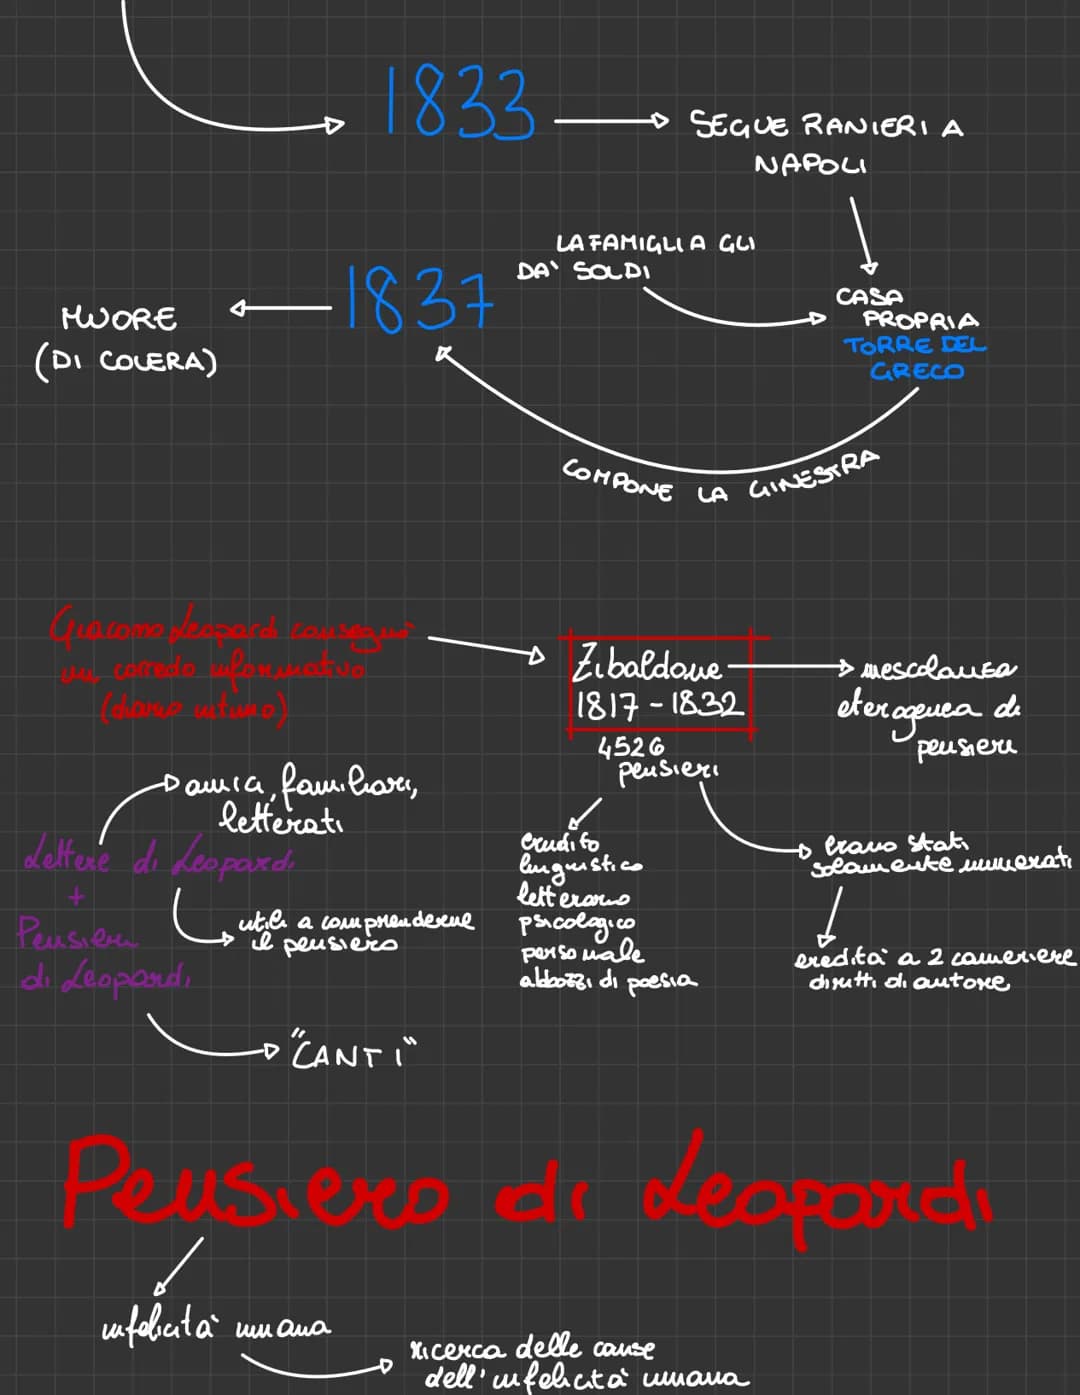 1833
SEGUE RANIERI A
NAPOLI
LA FAMIGLIA GLI
DA' SOLDI
CASA
PROPRIA
TORRE DEL
GRECO
1837
MUORE
(DI COLERA)
COMPONE LA GINESTRA
Giacomo Leopardi conseguì
un corredo informativo
(diario intimo)
Zibaldone
1817 - 1832
mescolanza
eterogenea di
pensieri
4526
pensieri
amici, familiari,
letterati
Lettere di Leopardi
+
Pensieri
di Leopardi
utili a comprenderne
il pensiero
erudito
linguistico
letterario
psicologico
personale
abbozzi di poesia
erano stati
solamente numerati
eredità a 2 cameriere
diritti di autore
"CANTI"
Pensiero di Leopardi
infelicità umana
ricerca delle cause
dell'infelicità umana